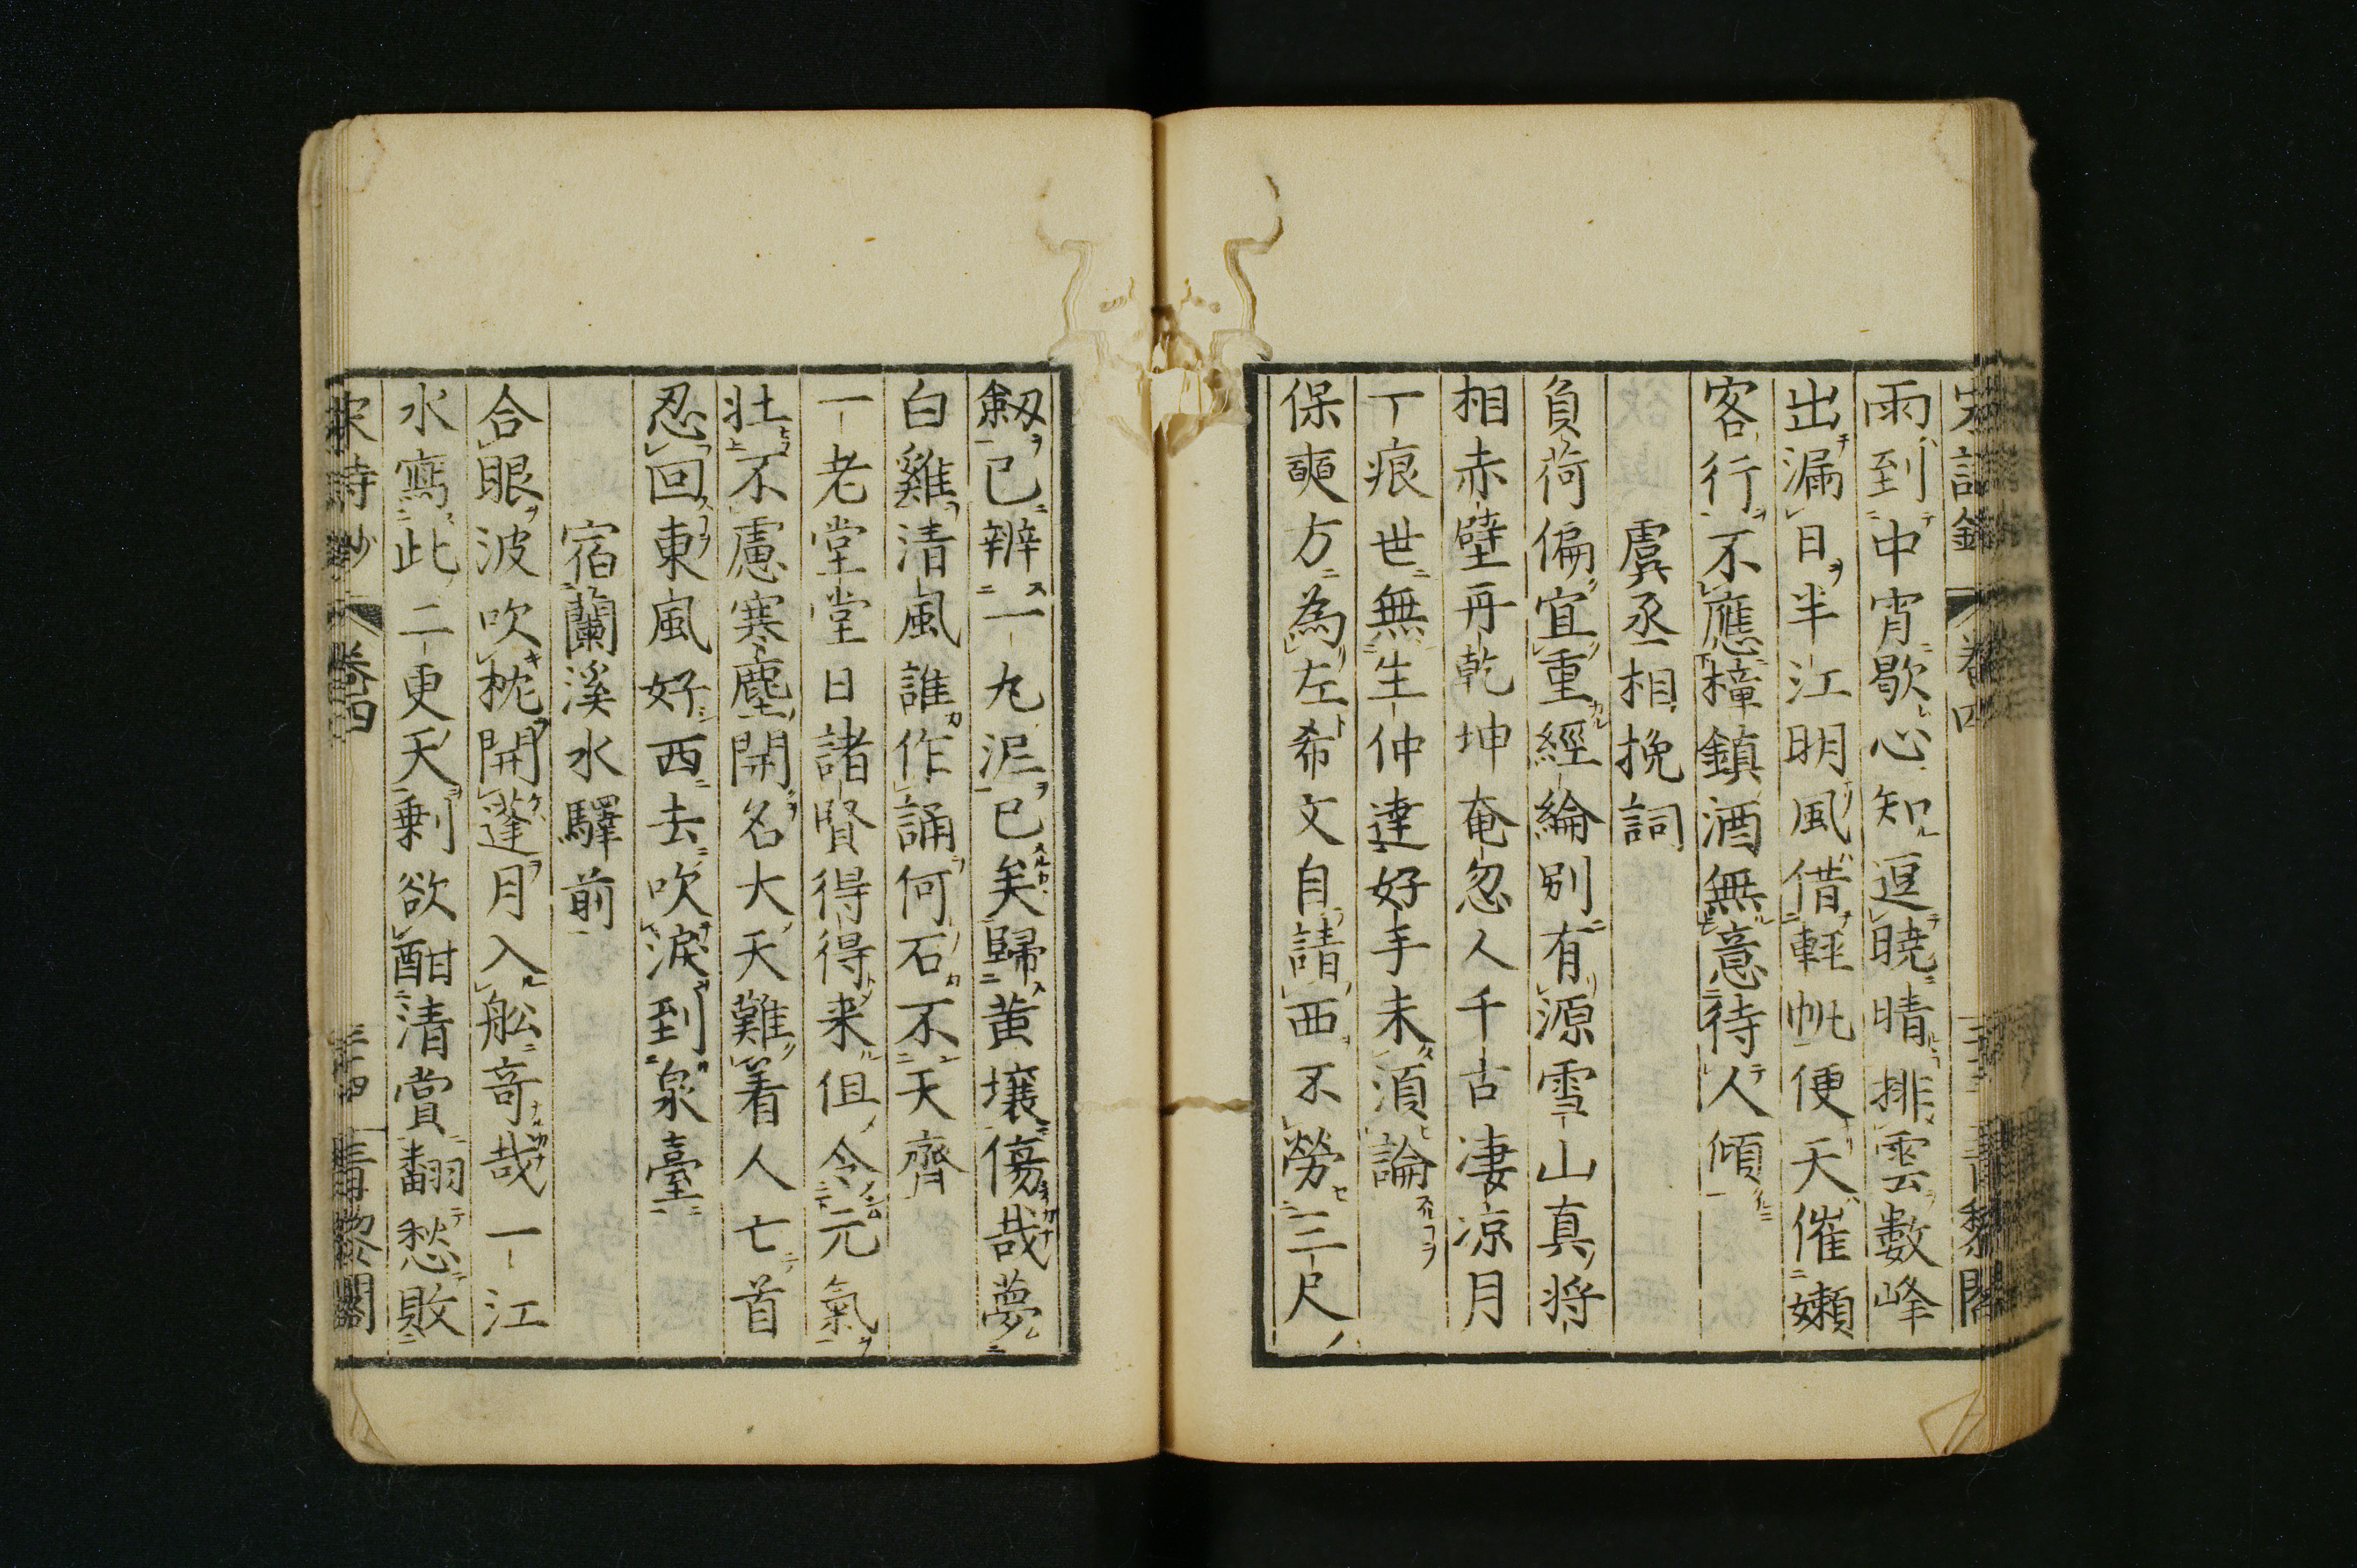 雨到中宵歇心知逗曉晴排雲數峰
出漏日半江明風借輕帆便天催嬾
客行不應樟鎮酒無意待人傾
虞丞相挽詞
負荷偏宜重經綸別有源雪山真將
相赤壁再乾坤奄忽人千古凄凉月
一痕世無生仲達好手未須論
保頭方為左希文自請西不勞三尺
劔已辨一丸泥已矣歸黄壤傷哉夢
白雞清風誰作誦何石不天齊
一老堂堂日諸賢得得来伹令元氣
壮不慮寒塵開名大天難着人亡首
忍回東風好西去吹淚到泉臺
宿蘭溪水驛前
合眼波吹枕開蓬月入舩奇哉一江
水寫此二更天剰欲酣清賞翻愁敗
宋詩鈔 卷四 青黎閣